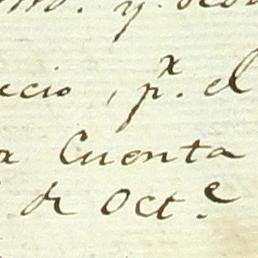 y.
cio, px. el
a Cuenta
de Octe.